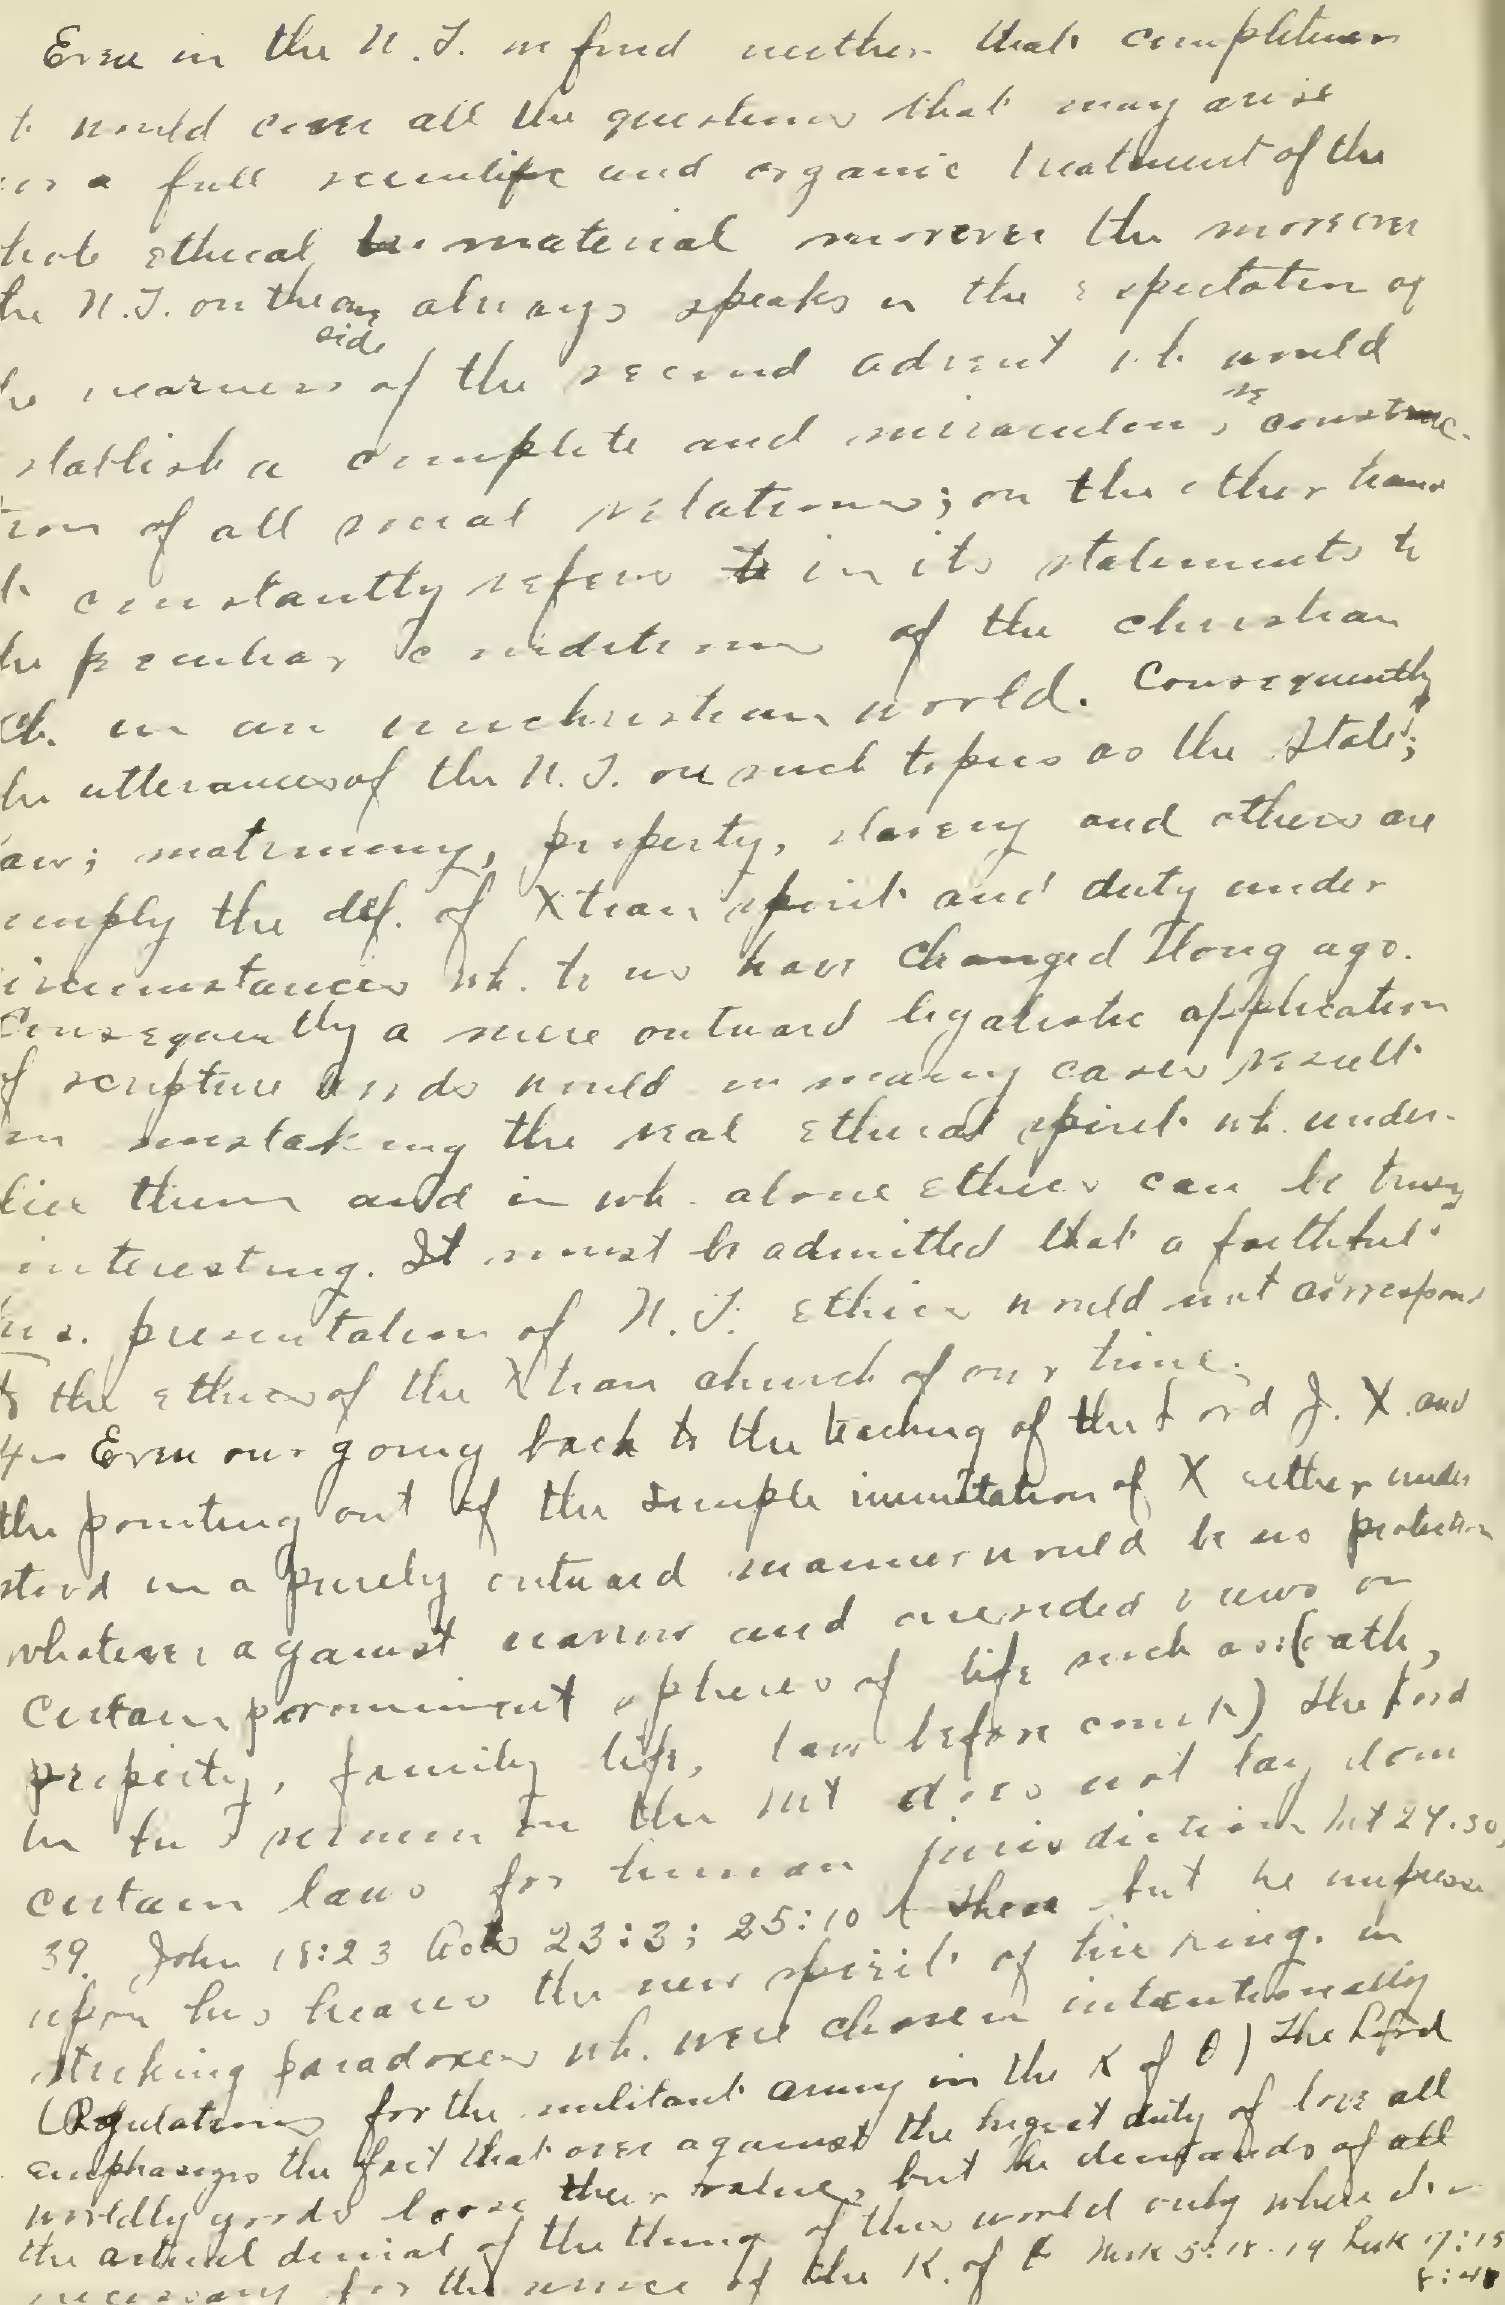 Even in the N. T. we find neither that completeness
t. would cover all the questions that may arise
or a full scientific and organic treatment of the
hole ethical material moreover the moreover
he N.T. on the one side always speaks in the expectation of
he nearness of the second advent wh. would
stablish a complete and miraculous reconstruc-
tion of all social relations; on the other hand
t. constantly refers in its statements to
he peculiar conditions of the christian
Ch. in an unchristian world. Consequently
he utterances of the N. T. on such topics as the State;
aw; matrimony, property, slavery and others are
imply the def. of Xtian spirit and duty under
ircumstances wh. to us have changed long ago.
Consequently a mere outward legalistic application
f scripture words would in many cases result
in mistaking the real ethical spirit wh. under-
lies them and in wh. alone ethics can be truly
interesting. It must be admitted that a faithful
his. presentation of N. T. ethics would not correspond
to the ethics of the Xtian church of our time.
Even our going back to the teaching of the Lord J. X. and
the pointing out of the simple immitation of X either under
stood in a purely outward manner would be no protection
whatever against narrow and onesided views on
certain prominent spheres of life such as (oath,
property, family life, law before court) The Lord
in his sermon on the mt does not lay down
certain laws for human jurisdiction Mt 27.30,
39. John 18:23 Acts 23:3; 25:10 these but he impresses
upon his hearers the new spirit of his king. in
striking paradoxes wh. were chosen intentionally
(Regulations for the militant army in the K of θ) The Lord
emphasizes the fact that over against the highest duty of love all
worldly goods loose their value, but he demands of all
the actual denial of the things of this world only where it is
necessary for the service of the K. of θ Mark 5:18-19 Luk 17:15
8:41